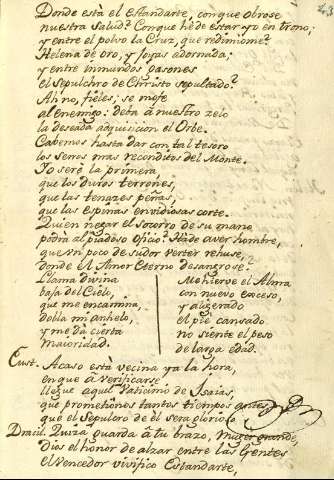 Donde està el estandarte, con que obrose
nuestra Salud? Con que hè de estar yo en trono;
y entre el polvo la Cruz, que redimiome?
Helena de oro, y joyas adornada;
y entre inmundos
el Sepulchro de Christo sepultado?
Ah no, fieles; se
al enemigo: deba â nuestro zelo
la deseada adquisicion el Orbe.
Cabemos hasta dar con tal tesoro
los senos mas reconditos del Monte.
Yo serè la primera,
que los duros terrones,
que las tenazes peñas,
que las espinas envidiosas corte.
Quien negar el Socorro de su mano
podrà al piadoso oficio? Hade aver hombre,
que un poco de sudor verter rehuse,
donde el Amor Eterno desangrose?
Llama divina
baja del Cielo,
que me encamina,
dobla mi anhelo,
y me da cierta
Me hierve el Alma
con nuevo exceso,
y
el piè cansado
no siente el peso
de larga edad.
Eust. Acaso està vecina ya la hora,
en que â verificarse
llegue aquel Vaticinio de Isaias,
que promethiònos tantos tiempos antes
que el Sepulcro de èl sera glorioso
Dracil. Quizà guarda â tu brazo, Muger grande,
Dios el honor de alzar entre las Gentes
el Vencedor vivifico Estandarte,